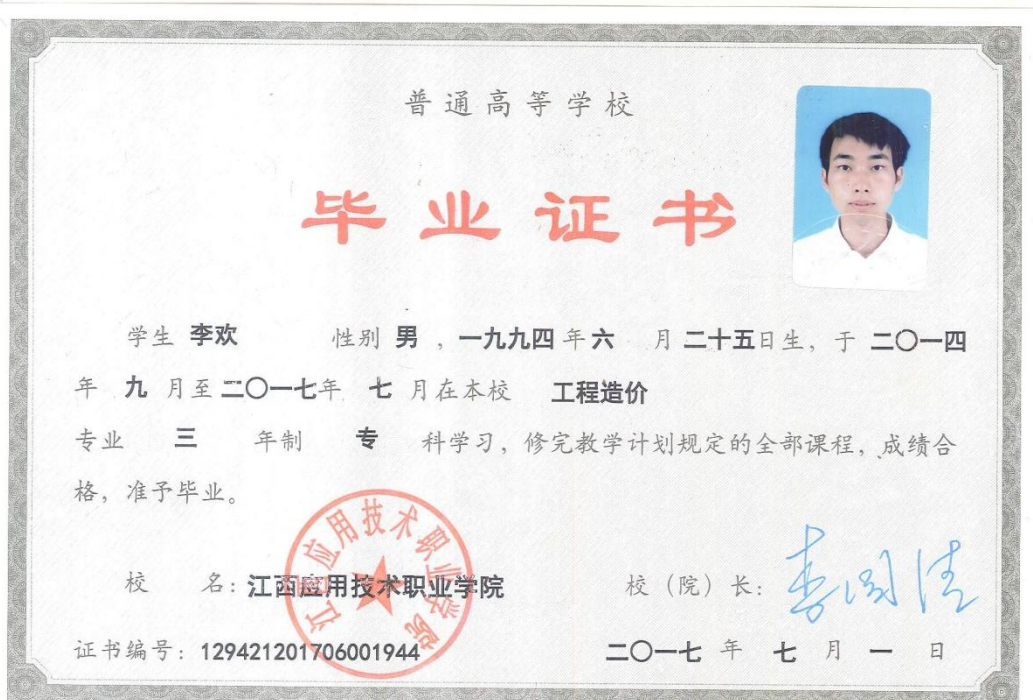 普通高等学校
毕业证书
学生 李欢 性别 男 ，一九九四 年 六 月 二十五日生，于 二〇一四
年 九 月至 二〇一七年 七 月在本校 工程造价
专业 三 年制 专 科学习，修完教学计划规定的全部课程，成绩合
格，准予毕业。
江西应用技术职业学院
校 名：江西应用技术职业学院 校（院）长：
证书编号：129421201706001944 二〇一七 年 七 月 一 日